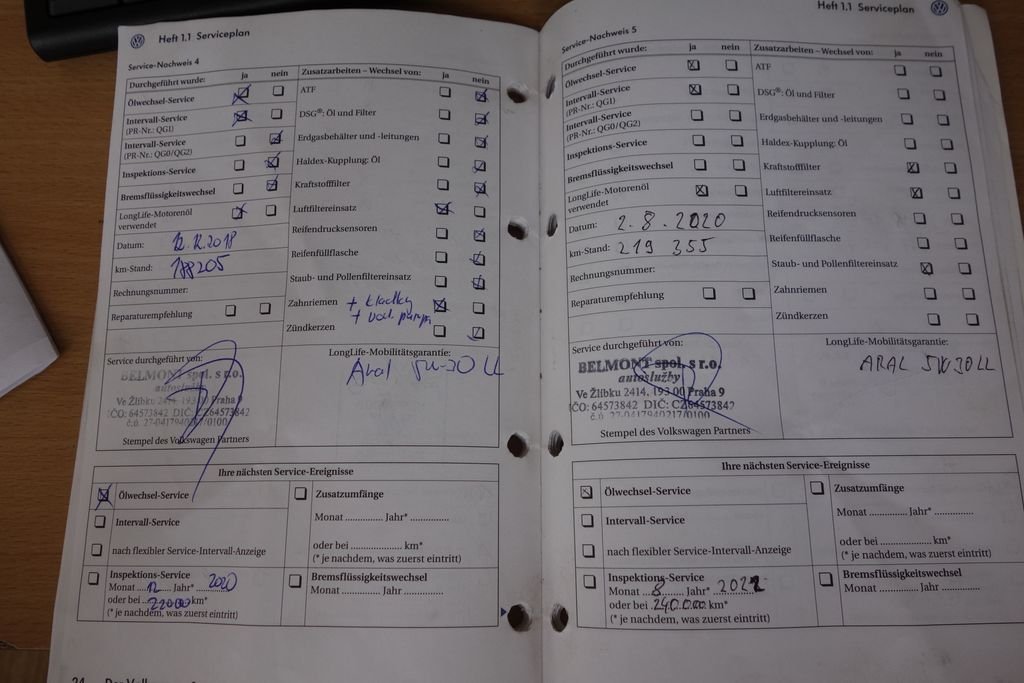 Heft 1.1 Serviceplan
Service-Nachweis 4
Durchgeführt wurde: ja nein
Ölwechsel-Service
Intervall-Service
(PR-Nr.: QG1)
Intervall-Service
(PR-Nr.: QG0/QG2)
Inspektions-Service
Bremsflüssigkeitswechsel
LongLife-Motorenöl
verwendet
Datum: 12.12.2018
km-Stand: 188205
Rechnungsnummer:
Reparaturempfehlung
Zusatzarbeiten – Wechsel von: ja nein
ATF
DSG®: Öl und Filter
Erdgasbehälter und -leitungen
Haldex-Kupplung: Öl
Kraftstofffilter
Luftfiltereinsatz
Reifendrucksensoren
Reifenfüllflasche
Staub- und Pollenfiltereinsatz
Zahnriemen + kladky
+ vod. pumpa
Zündkerzen
Service durchgeführt von:
BELMONT spol. s r.o.
autoslužby
Ve Žlíbku 2414, 193 00 Praha 9
IČO: 64573842 DIČ: CZ64573842
č.ú. 27-0417940217/0100
Stempel des Volkswagen Partners
LongLife-Mobilitätsgarantie:
ARAL 5W-30 LL
Ihre nächsten Service-Ereignisse
Ölwechsel-Service
Intervall-Service
nach flexibler Service-Intervall-Anzeige
Inspektions-Service
Monat 12 Jahr* 2020
oder bei 220000 km*
(* je nachdem, was zuerst eintritt)
Zusatzumfänge
Monat ............. Jahr* ..............
oder bei .................... km*
(* je nachdem, was zuerst eintritt)
Bremsflüssigkeitswechsel
Monat ............. Jahr ..............
Heft 1.1 Serviceplan
Service-Nachweis 5
Durchgeführt wurde: ja nein
Ölwechsel-Service
Intervall-Service
(PR-Nr.: QG1)
Intervall-Service
(PR-Nr.: QG0/QG2)
Inspektions-Service
Bremsflüssigkeitswechsel
LongLife-Motorenöl
verwendet
Datum: 2.8.2020
km-Stand: 219 355
Rechnungsnummer:
Reparaturempfehlung
Zusatzarbeiten – Wechsel von: ja nein
ATF
DSG®: Öl und Filter
Erdgasbehälter und -leitungen
Haldex-Kupplung: Öl
Kraftstofffilter
Luftfiltereinsatz
Reifendrucksensoren
Reifenfüllflasche
Staub- und Pollenfiltereinsatz
Zahnriemen
Zündkerzen
Service durchgeführt von:
BELMONT spol. s r.o.
autoslužby
Ve Žlíbku 2414, 193 00 Praha 9
IČO: 64573842 DIČ: CZ64573842
č.ú. 27-0417940217/0100
Stempel des Volkswagen Partners
LongLife-Mobilitätsgarantie:
ARAL 5W30LL
Ihre nächsten Service-Ereignisse
Ölwechsel-Service
Intervall-Service
nach flexibler Service-Intervall-Anzeige
Inspektions-Service
Monat 8 Jahr* 2022
oder bei 240.000 km*
(* je nachdem, was zuerst eintritt)
Zusatzumfänge
Monat ............. Jahr* ..............
oder bei .................... km*
(* je nachdem, was zuerst eintritt)
Bremsflüssigkeitswechsel
Monat ............. Jahr ..............